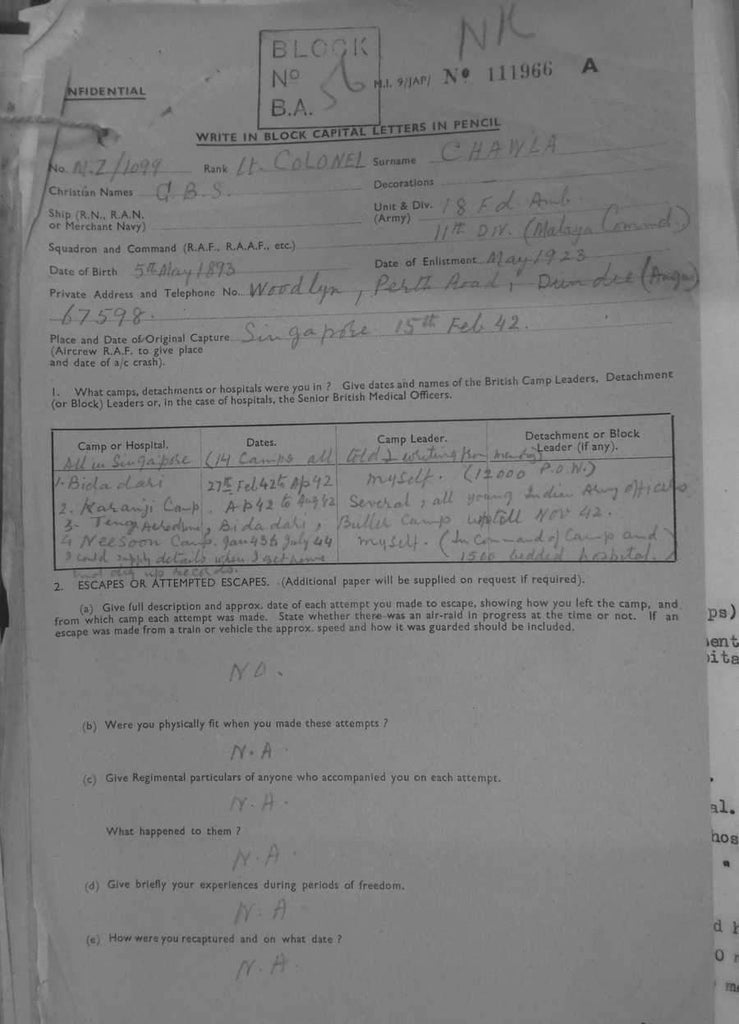 NFIDENTIAL
BLOCK
No
B.A.
NK
M.I. 9/JAP/ No 111966 A
WRITE IN BLOCK CAPITAL LETTERS IN PENCIL
No. M.Z/1099 Rank Lt. COLONEL Surname CHAWLA
Christian Names G.B.S. Decorations
Ship (R.N., R.A.N. or Merchant Navy) Unit & Div. (Army) 18 Fd Amb.
11th DIV. (Malaya Command)
Squadron and Command (R.A.F., R.A.A.F., etc.)
Date of Birth 5th May 1893 Date of Enlistment May 1923
Private Address and Telephone No. Woodlyn, Perth Road, Dundee (Angus)
67598.
Place and Date of Original Capture Singapore 15th Feb 42.
(Aircrew R.A.F. to give place
and date of a/c crash).
1. What camps, detachments or hospitals were you in ? Give dates and names of the British Camp Leaders, Detachment
(or Block) Leaders or, in the case of hospitals, the Senior British Medical Officers.
Camp or Hospital. Dates. Camp Leader. Detachment or Block Leader (if any).
All in Singapore (14 Camps all told I writing from memory)
1. Bidadari 27th Feb 42 to Ap 42 myself. (12000 P.O.W.)
2. Karanji Camp. Ap 42 to Aug 42 Several, all young Indian Army officers
3. Teng Aerodrome, Bidadari, Buller Camp uptill Nov 42.
4 Neesoon Camp. Jan 43 to July 44 myself. (In command of Camp and
I could supply details when I get home 1500 bedded hospital.)
and dig up records.
2. ESCAPES OR ATTEMPTED ESCAPES. (Additional paper will be supplied on request if required).
(a) Give full description and approx. date of each attempt you made to escape, showing how you left the camp, and
from which camp each attempt was made. State whether there was an air-raid in progress at the time or not. If an
escape was made from a train or vehicle the approx. speed and how it was guarded should be included.
NO.
(b) Were you physically fit when you made these attempts ?
N.A.
(c) Give Regimental particulars of anyone who accompanied you on each attempt.
N.A.
What happened to them ?
N.A.
(d) Give briefly your experiences during periods of freedom.
N.A
(e) How were you recaptured and on what date ?
N.A.
ps)